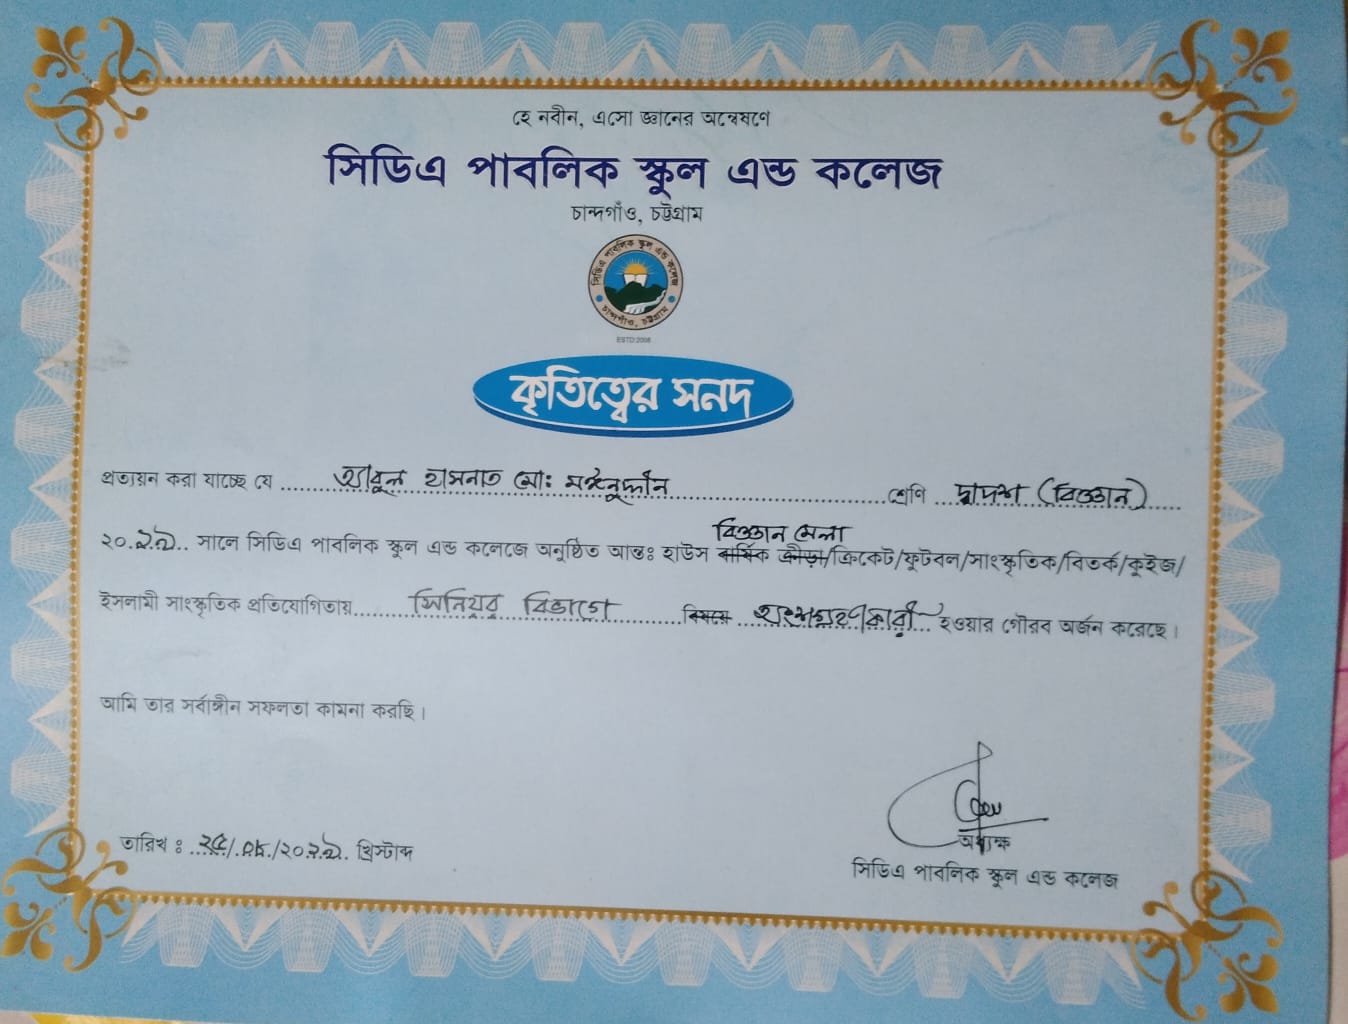 হে নবীন, এসো জ্ঞানের অন্বেষণে
সিডিএ পাবলিক স্কুল এন্ড কলেজ
চান্দগাঁও, চট্টগ্রাম
সিডিএ পাবলিক স্কুল এন্ড কলেজ
চান্দগাঁও, চট্টগ্রাম
ESTD:2008
কৃতিত্বের সনদ
প্রত্যয়ন করা যাচ্ছে যে আবুল হাসনাত মো: মঈনুদ্দীন শ্রেণি দ্বাদশ (বিজ্ঞান)
বিজ্ঞান মেলা
২০ সালে সিডিএ পাবলিক স্কুল এন্ড কলেজে অনুষ্ঠিত আন্তঃ হাউস বার্ষিক ক্রীড়া/ক্রিকেট/ফুটবল/সাংস্কৃতিক/বিতর্ক/কুইজ/
ইসলামী সাংস্কৃতিক প্রতিযোগিতায় সিনিয়র বিভাগে বিষয়ে অংশগ্রহণকারী হওয়ার গৌরব অর্জন করেছে।
আমি তার সর্বাঙ্গীন সফলতা কামনা করছি।
তারিখ : খ্রিস্টাব্দ
অধ্যক্ষ
সিডিএ পাবলিক স্কুল এন্ড কলেজ